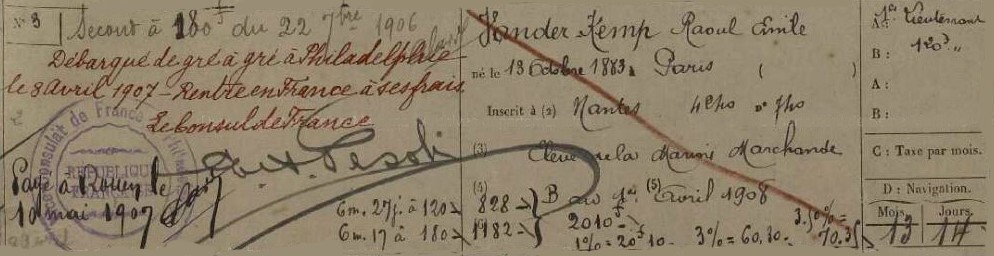 N° 3
Second à 180 f du 22 7bre 1906
Débarqué de gré à gré à Philadelphie
le 8 avril 1907 - Rentre en France à ses frais.
Le Consul de France
Consulat de France
RÉPUBLIQUE
FRANÇAISE
Payé à Rouen le
10 mai 1907
6 m. 27 j. à 120
6 m. 17 à 180
828
1982
Vander Kemp Raoul Emile
né le 13 Octobre 1883 à Paris ( )
Inscrit à (2) Nantes N° 740
(3) Elève de la Marine Marchande
(4) B au 1er (5) Avril 1908
2010 f
1% = 20 f 10 - 3% = 60,30 -
3.5% =
70.35
A : 1er Lieutenant
B : 120 f "
A :
B :
C : Taxe par mois.
D : Navigation.
Mois. Jours.
13 14